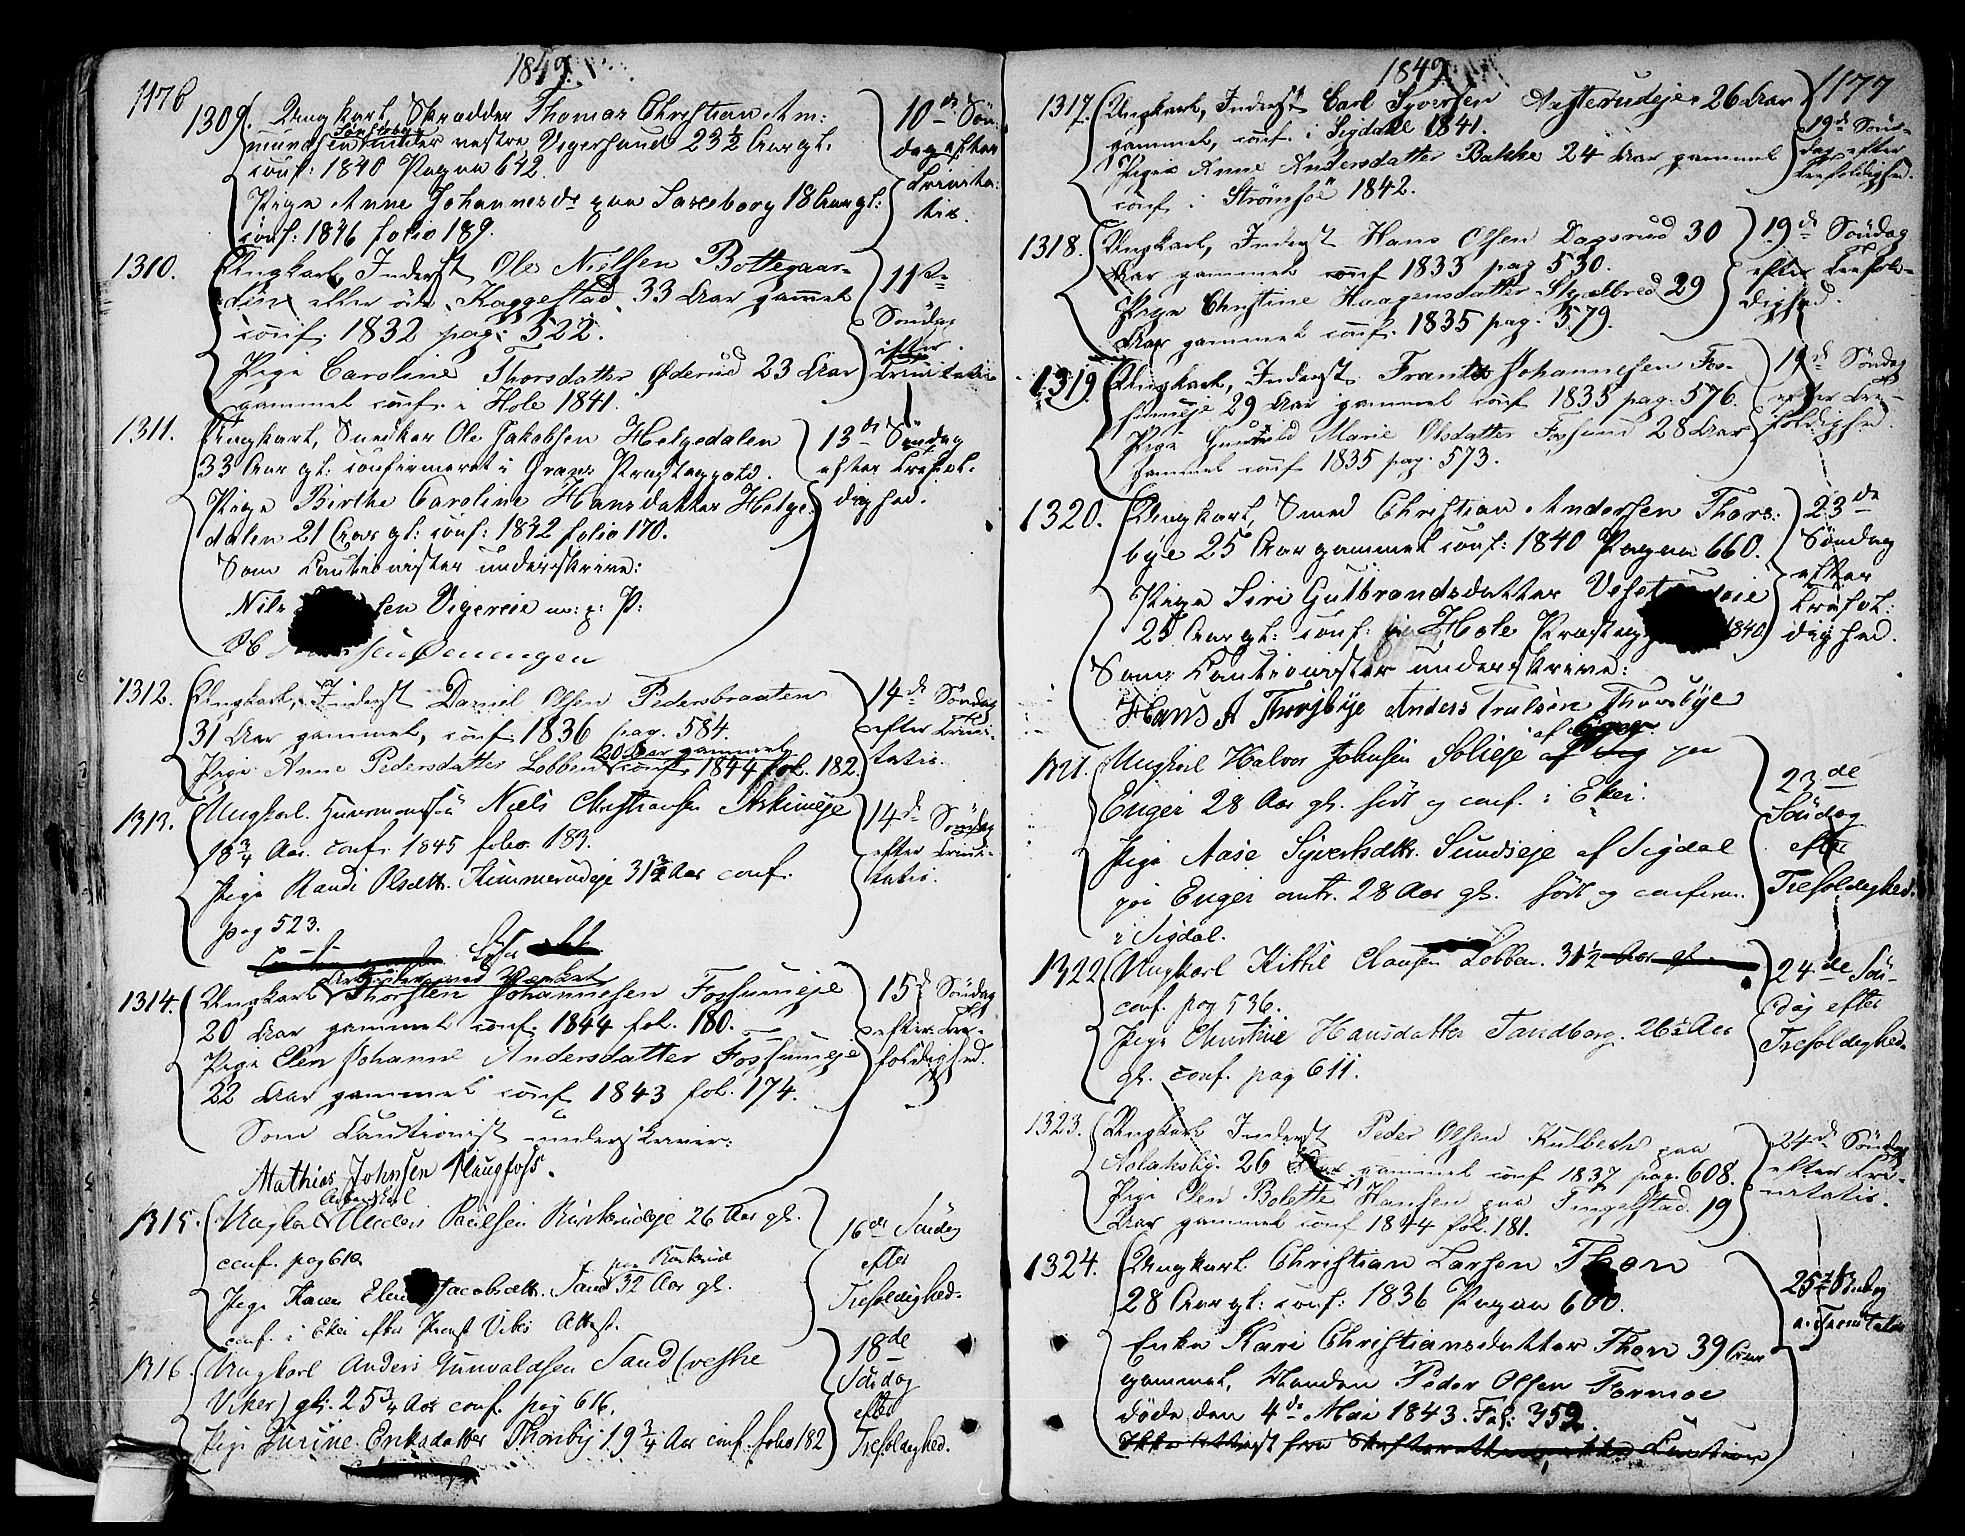 1176
1849.
1309. Ungkarl, Skrædder Thomas Christian Am:
mundsen under vestre Vigersund 23 1/2 Aar gl.
conf: 1840 Pagna 642.
Pige Anne Johannesd. paa 18 Aar gl:
conf: 1846 folio 189.
10de Søn:
dag efter
Trinita:
tis.
1310. Ungkarl, Inderst Ole Nielsen Bottegaar-
den eller øde Kaggestad 33 Aar gammel
conf. 1832 pag: 522.
Pige Caroline Thorsdatter Øderud 23 Aar
gammel conf. i Hole 1841.
11te
Søndag
efter
Trinitatis
1311. Ungkarl, Snedker Ole Jakobsen Helgedalen
33 Aar gl: confirmeret i Grans Præstegjeld.
Pige Birthe Caroline Hansdatter Helge-
dalen 21 Aar gl: conf: 1842 folio 170.
Som Cautionister underskrive:
Nils sen Vigereie m: p: P:
sen Øenengen
13de Søndag
efter Trefol-
dighed.
1312. Ungkarl, Inderst Daniel Olsen Pedersbraaten
31 Aar gammel, conf. 1836 pag. 584.
20 Aar gammel
Pige Anne Pedersdatter Lobben conf. 1844 fol. 182.
14de Søndag
efter Trini-
tatis.
1313. Ungkarl Huusmandssøn Niels Christiansen Askimeje
18 3/4 Aar. conf. 1845 folio 183.
Pige Randi Olsdttr. Kimmerudeje 31 3/4 Aar conf.
pag 523.
14de Søndag
efter Trini-
tatis.
Arbeider ved Værket
1314. Ungkarl Thorsten Johannesen Fossumeje
20 Aar gammel conf. 1844 fol. 180.
Pige Elen Johanne Andersdatter Fossumeje
22 Aar gammel conf 1843 fol. 174.
Som Cautionist underskriver:
Mathias Johnsen Haugfoss.
15de Søndag
efter Tre-
foldighed.
Arbeidskarl
1315. Ungkarl Anders Paulsen Kirkerudeje 26 Aar gl.
conf. pag 610
Pige Karen Elen Jacobsdttr. Sand 32 Aar gl.
conf. i Eker efter Præst Vibes Attest.
16de Søndag
efter
Trefoldighed.
1316. Ungkarl Anders Gunvaldsen Sand (vestre
Viker) gl. 25 3/4 Aar conf. pag 616.
Pige Jurine Eriksdatter Thorsby 19 3/4 Aar conf. folio 182
18de
Søndag
efter
Trefoldighed.
1849.
1177
1317. Ungkarl, Inderst Carl Syversen Aasterudeje 26 Aar
gammel, conf. i Sigdal 1841.
Pige Anne Andersdatter Bakke 24 Aar gammel
conf. i Strømsøe 1842.
19de Søn-
dag efter
Trefoldighed.
1318. Ungkarl, Inderst Hans Olsen Dagsrud 30
Aar gammel conf 1833 pag 530.
Pige Christine Haagensdatter Skjælbred 29
Aar gammel conf. 1835 pag. 579.
19de Søndag
efter Trefol-
dighed.
1319. Ungkarl, Inderst Frants Johannesen Fos-
sumeje 29 Aar gammel conf 1835 pag. 576.
Pige Gunild Marie Olsdatter Fossum 28 Aar
gammel conf 1835 pag. 573.
19de Søndag
efter Tre-
foldighed.
1320. Ungkarl, Smed Christian Andersen Thors:
bye 25 Aar gammel conf: 1840 Pagna 660.
Pige Siri Gulbrandsdatter
25 Aar gl: conf: i Hole Præsteg 1840
Som Cautionister underskrive:
Hans A Thorsbye Anders Trulsen Thorsbye
23de
Søndag
efter
Trefol:
dighed.
1321. Ungkarl Halvor Johnsen Solieje af Eger paa
Enger 28 Aar gl. født og conf. i Eker.
Pige Aase Syvertsdttr. Sundseje af Sigdal
paa Enger omtr. 28 Aar gl. født og conferm.
i Sigdal.
23de
Søndag
efter
Trefoldighed.
1322. Ungkarl Kittil Clausen Lobben. 31 1/2 Aar gl.
conf. pag 536.
Pige Christine Hansdatter Tandberg. 26 1/2 Aar
gl. conf. pag 611.
24de Søn-
dag efter
Trefoldighed.
1323. Ungkarl Inderst Peder Olsen Kulbech paa
Aslaksby. 26 Aar gammel conf 1837 pag. 608.
Pige Elen Bolette Hansen paa Tingelstad. 19
Aar gammel conf 1844 fol. 181.
24de Søndag
efter Tri-
nitatis.
1324. Ungkarl Christian Larsen Thon
28 Aar gl: conf: 1836 Pagna 600.
Enke Kari Christiansdatter Thon 39 Aar
gammel, Manden Peder Olsen Formoe
døde den 4de Mai 1843. Fol: 352.
25de Søndag
e. Trinitatis